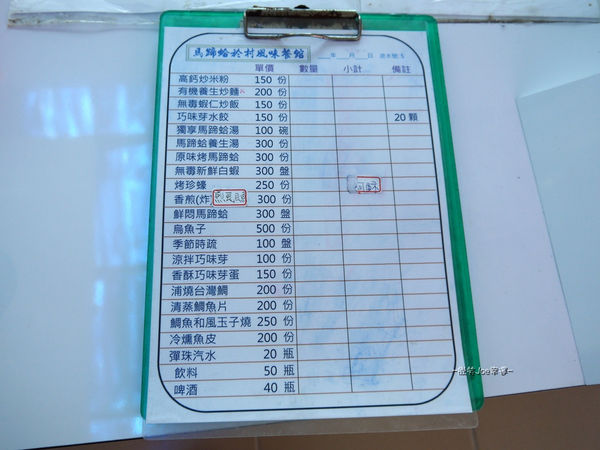 馬蹄蛤於村風味餐館 年 月 日
單價 數量 小計 備註
高鈣炒米粉 150 份
有機養生炒麵 200 份
無毒蝦仁炒飯 150 份
巧味芽水餃 150 份 20 顆
獨享馬蹄蛤湯 100 碗
馬蹄蛤養生湯 300 份
原味烤馬蹄蛤 300 份
無毒新鮮白蝦 300 盤
烤珍蠔 250 份
香煎(炸) 300 份
鮮悶馬蹄蛤 300 盤
烏魚子 500 份
季節時疏 100 盤
涼拌巧味芽 100 份
香酥巧味芽蛋 150 份
浦燒台灣鯛 200 份
清蒸鯛魚片 200 份
鯛魚和風玉子燒 250 份
冷燻魚皮 200 份
彈珠汽水 20 瓶
飲料 50 瓶
啤酒 40 瓶